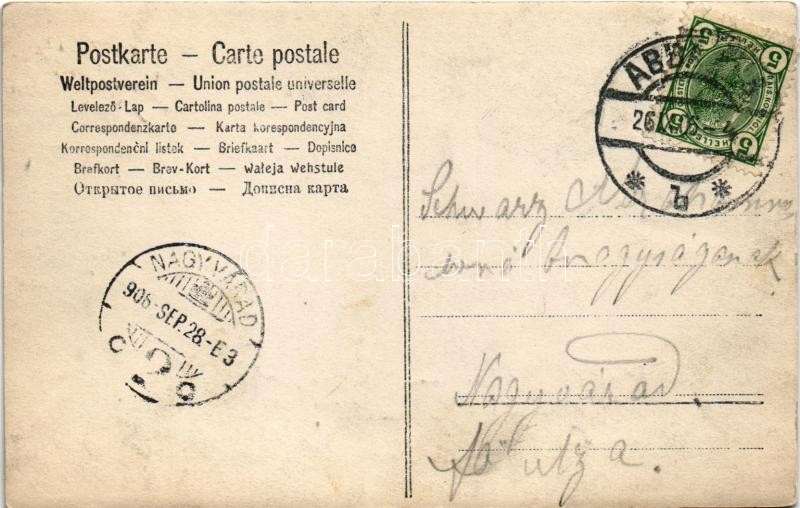 Postkarte — Carte postale
Weltpostverein — Union postale universelle
Levelező-Lap — Cartolina postale — Post card
Correspondenzkarte — Karta korespondencyjna
Korrespondenční lístek — Briefkaart — Dopisnice
Brefkort — Brev-Kort — Waleja Wehstule
Открытое письмо — Дописна карта
ABB
26
b
5 5
5 5
HELLER
NAGYVÁRAD
906-SEP.28.-E3
darabanth
Schwarz
úrnő Őnagyságának
Nagyvárad
Fő utza.